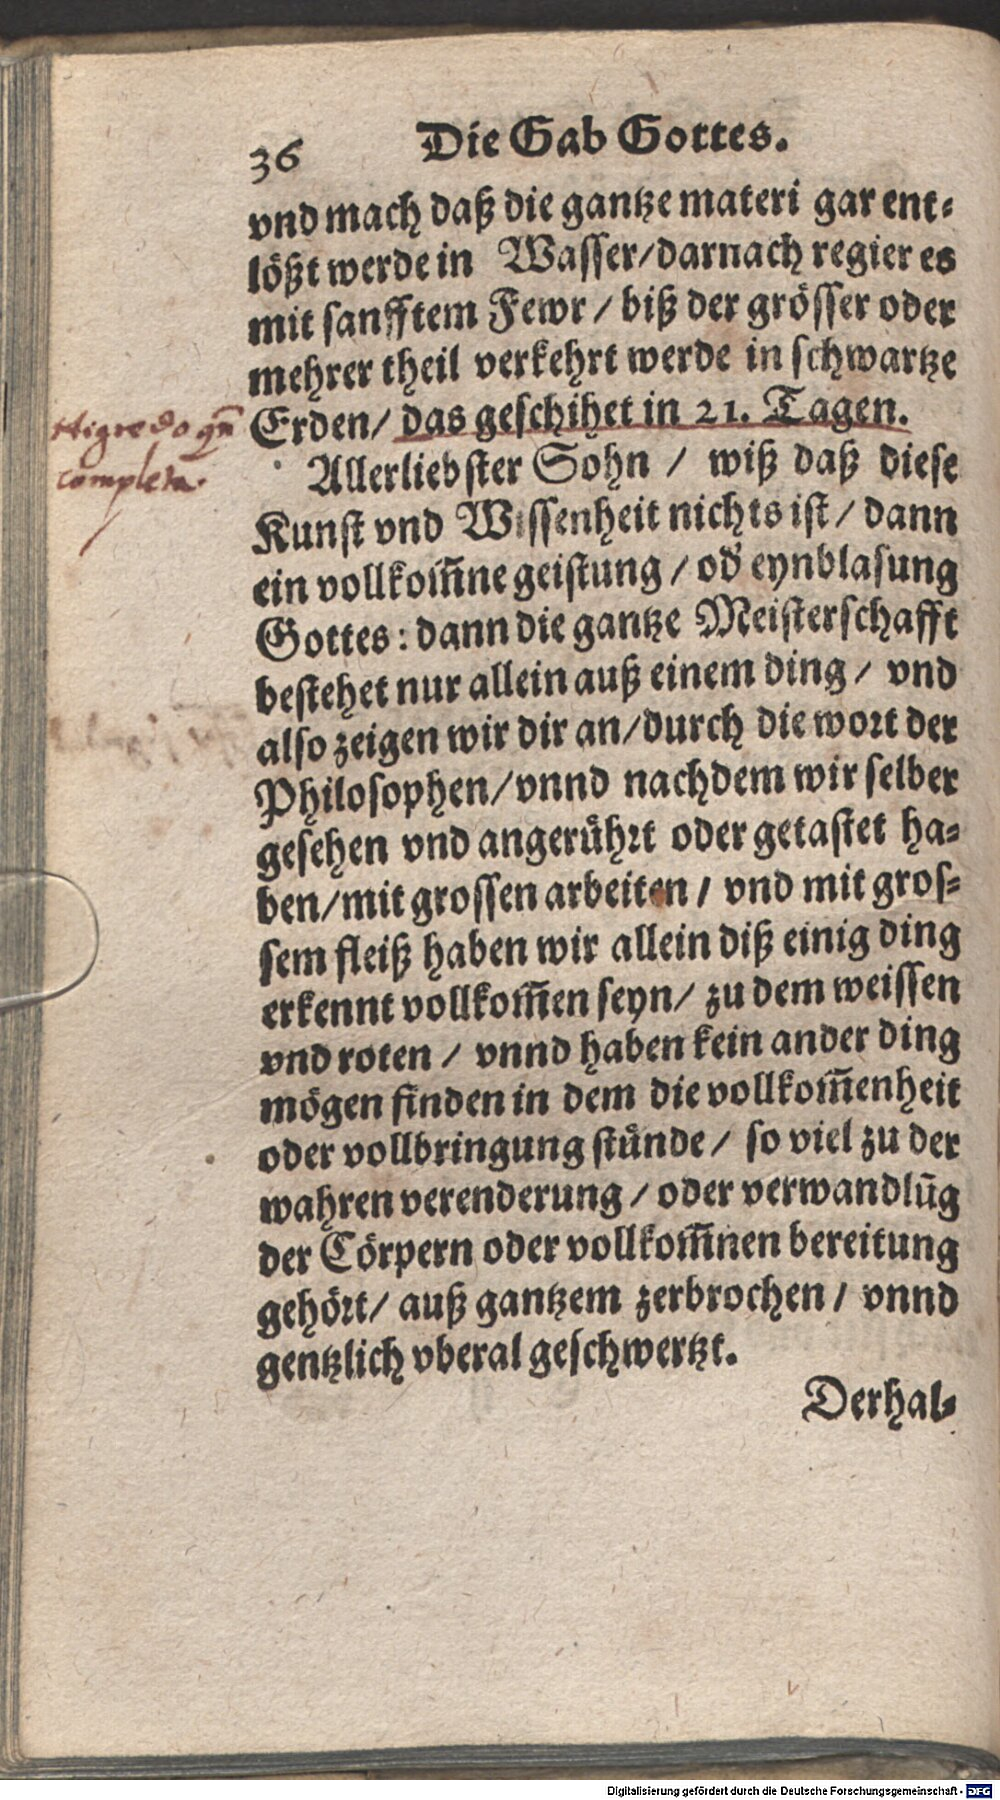 36 Die Gab Gottes.
vnd mach daß die gantze materi gar ent⸗
lößt werde in Wasser/darnach regier es
mit sanfftem Fewr / biß der grösser oder
mehrer theil verkehrt werde in schwartze
Erden/ das geschihet in 21. Tagen.
Nigredo qn̄
completa.
Allerliebster Sohn / wiß daß diese
Kunst vnd Wissenheit nichts ist / dann
ein vollkom̄ne geistung / od' eynblasung
Gottes: dann die gantze Meisterschafft
bestehet nur allein auß einem ding / vnd
also zeigen wir dir an/durch die wort der
Philosophen/vnnd nachdem wir selber
gesehen vnd angerührt oder getastet ha⸗
ben/mit grossen arbeiten / vnd mit gros⸗
sem fleiß haben wir allein diß einig ding
erkennt vollkom̄en seyn/ zu dem weissen
vnd roten / vnnd haben kein ander ding
mögen finden in dem die vollkom̄enheit
oder vollbringung stünde / so viel zu der
wahren verenderung / oder verwandlūg
der Cörpern oder vollkom̄nen bereitung
gehört/ auß gantzem zerbrochen / vnnd
gentzlich vberal geschwertzt.
Derhal⸗
Digitalisierung gefördert durch die Deutsche Forschungsgemeinschaft - DFG